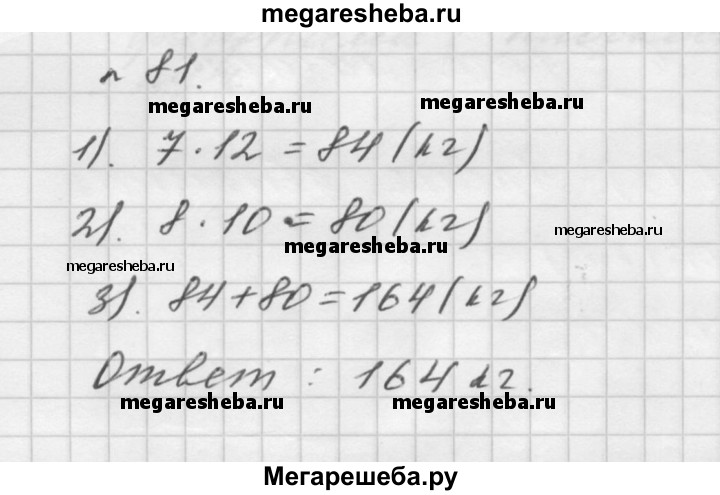 megaresheba.ru
№ 81.
megaresheba.ru megaresheba.ru
1). 7 · 12 = 84 (кг)
2). 8 · 10 = 80 (кг)
megaresheba.ru megaresheba.ru
megaresheba.ru
3). 84 + 80 = 164 (кг)
Ответ : 164 кг.
megaresheba.ru megaresheba.ru
Мегарешеба.ру